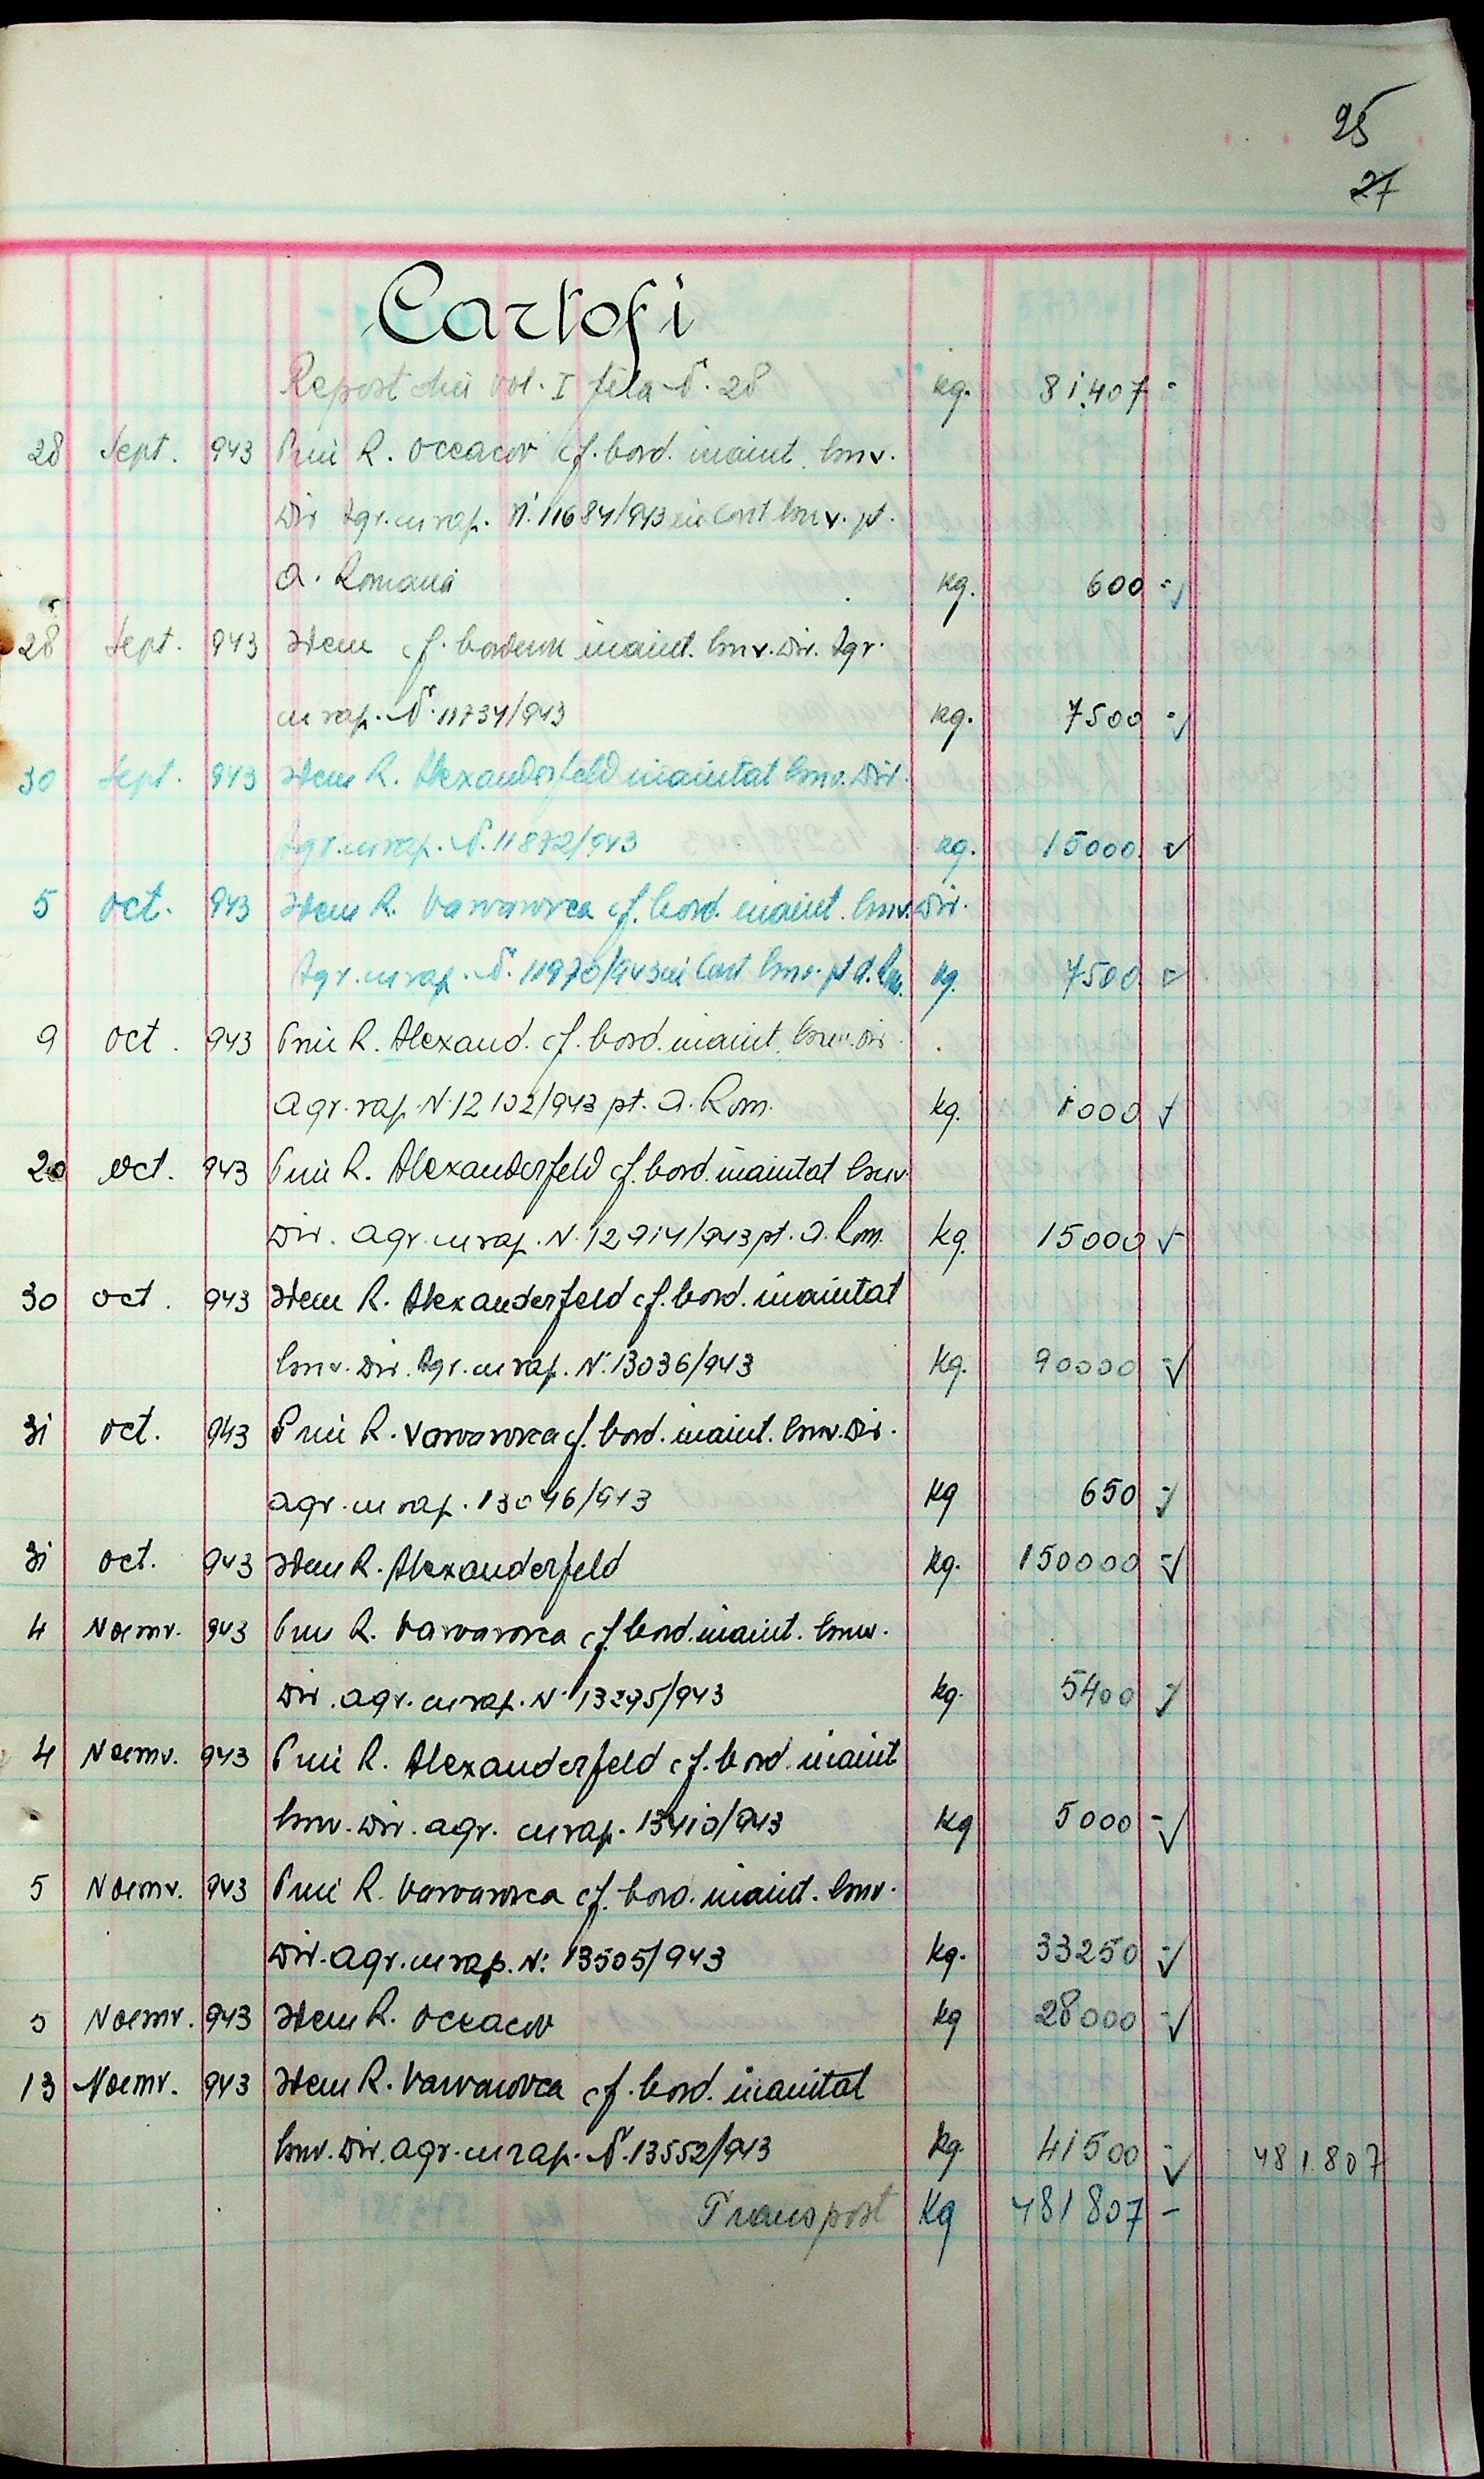 25
27
Cartofi
Report din vol. I fila N. 28 kg. 81.407 -
28 Sept. 943 Prin R. Oceacov cf. bord. inaint. Guv.
Dir Agr. cu rap. N. 11684/943 in cont Guv. pt.
A. Romană kg. 600 -
28 Sept. 943 Idem cf. borderou inaint. Guv. Dir. Agr.
cu rap. N. 11734/943 kg. 7500 -
30 Sept. 943 Idem R. Alexanderfeld inaintat Guv. Dir.
Agr. cu rap. N. 11872/943 kg. 15000 -
5 Oct. 943 Idem R. Varvarovca cf. bord. inaint. Guv. Dir.
Agr. cu rap. N. 11970/943 in cont Guv. pt A. Rom. kg. 7500 -
9 Oct. 943 Prin R. Alexand. cf. bord. inaint. Guv. Dir.
Agr. rap. N. 12102/943 pt. A. Rom. kg. 1000 -
20 Oct. 943 Prin R. Alexanderfeld cf. bord. inaintat Guv.
Dir. Agr. cu rap. N. 12914/943 pt. A. Rom. kg. 15000 -
30 Oct. 943 Idem R. Alexanderfeld cf. bord. inaintat
Guv. Dir. Agr. cu rap. N. 13036/943 kg. 90000 -
31 Oct. 943 Prin R. Varvarovca cf. bord. inaint. Guv. Dir.
Agr. cu rap. 13046/943 kg 650 -
31 Oct. 943 Idem R. Alexanderfeld kg. 150000 -
4 Noemv. 943 Prin R. Varvarovca cf. bord. inaint. Guv.
Dir. Agr. cu rap. N. 13295/943 kg. 5400 -
4 Noemv. 943 Prin R. Alexanderfeld cf. bord. inaint
Guv. Dir. Agr. cu rap. 13410/943 kg 5000 -
5 Noemv. 943 Prin R. Varvarovca cf. bord. inaint. Guv.
Dir. Agr. cu rap. N. 13505/943 kg. 33250 -
5 Noemv. 943 Idem R. Oceacov kg 28000 -
13 Noemv. 943 Idem R. Varvarovca cf. bord. inaintat
Guv. Dir. Agr. cu rap. N. 13552/943 kg. 41500 - 481.807
Transport Kg 481807 -